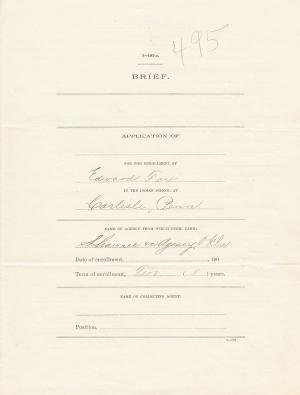 495
BRIEF.
APPLICATION OF
FOR THE ENROLLMENT AT
Edward Fox
IN THE INDIAN SCHOOL AT
Carlisle, Penn
NAME OF AGENCY FROM WHICH PUPIL CAME:
Shawnee Agency Okla
Date of enrollment, 190
Term of enrollment, ( ) years.
NAME OF COLLECTING AGENT:
Position,